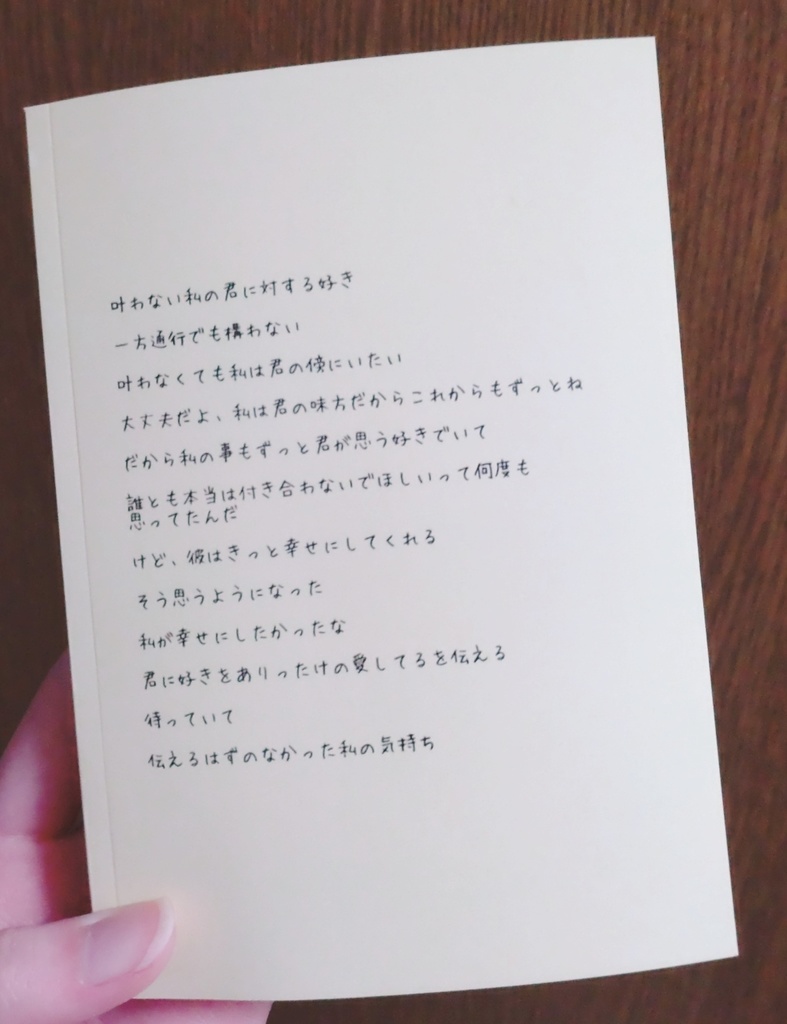 叶わない私の君に対する好き
一方通行でも構わない
叶わなくても私は君の傍にいたい
大丈夫だよ、私は君の味方だからこれからもずっとね
だから私の事もずっと君が思う好きでいて
誰とも本当は付き合わないでほしいって何度も
思ってたんだ
けど、彼はきっと幸せにしてくれる
そう思うようになった
私が幸せにしたかったな
君に好きをありったけの愛してるを伝える
待っていて
伝えるはずのなかった私の気持ち